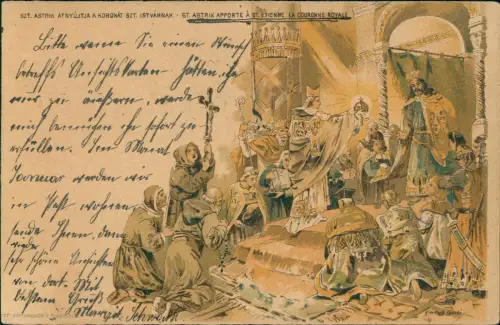 SZT. ASTRIK ÁTNYÚJTJA A KORONÁT SZT. ISTVÁNNAK. - ST. ASTRIX APPORTE À ST. ETIENNE LA COURONNE ROYALE.
Bitte wenn Sie einen Wunsch
betreffs Ansichtskarten hätten, ihn
mir zu äußern, werde
mich bemühen ihn sofort zu
erfüllen. Im Monat
Januar werden wir
in Pest wohnen
sende Ihnen, dann
sehr schöne Ansichten
von dort. Mit
bestem Gruß
Margit